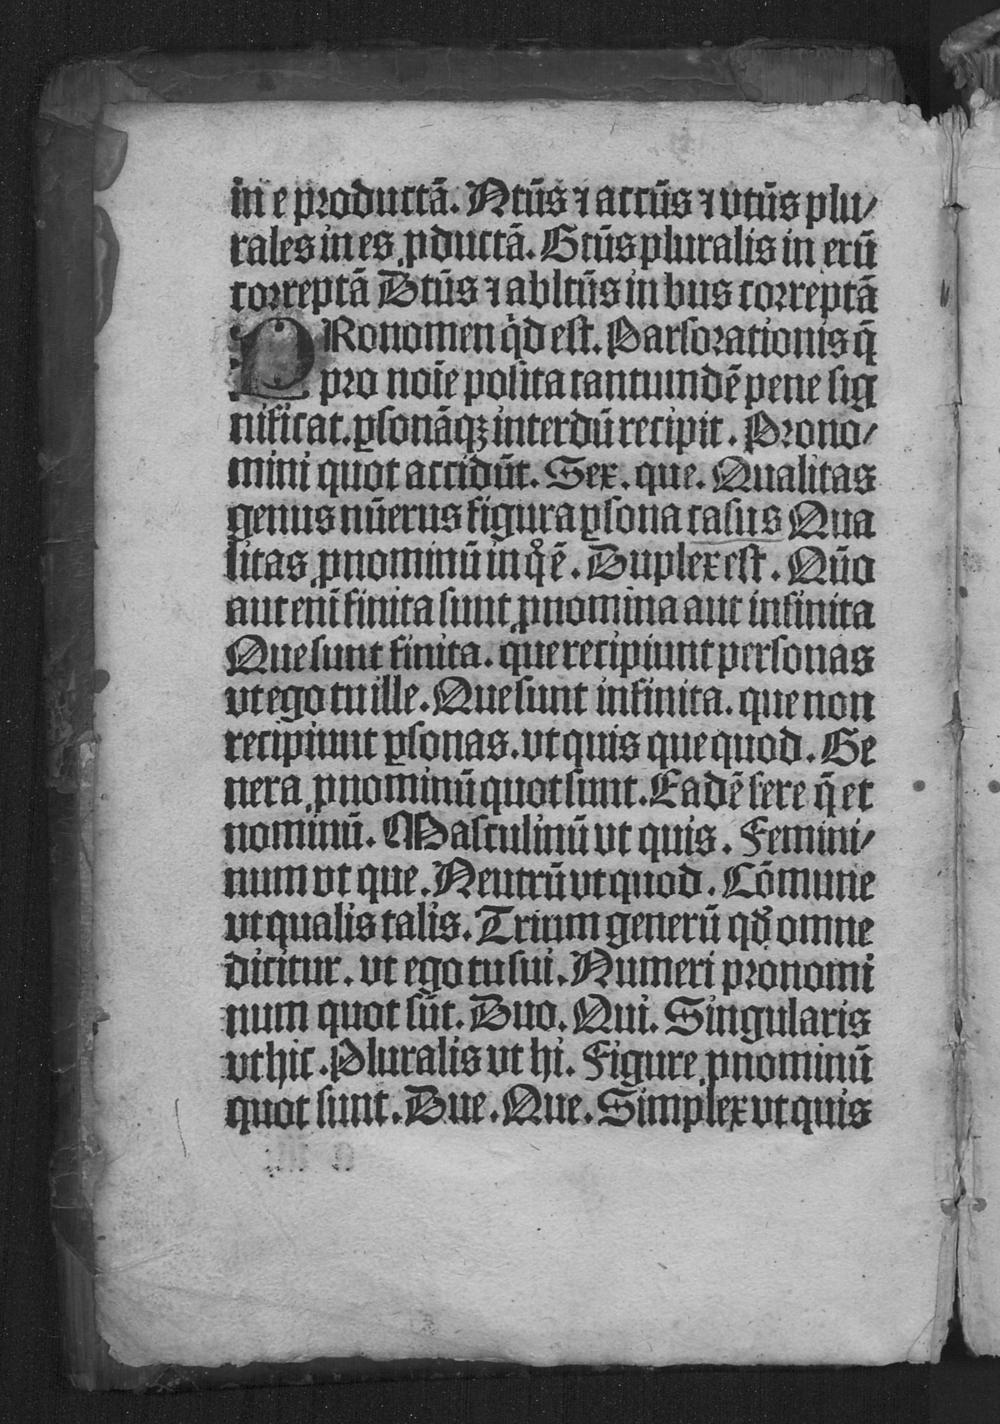 in e productā. Ntūs ⁊ accūs ⁊ vtūs plu/
rales in es ꝓductā. Gtūs pluralis in erū
correptā Dtūs ⁊ abltūs in bus correptā
PRonomen qͥd est. Pars orationis q̄
pro noīe posita tantundē pene sig
nificat. ꝑsonāqꝫ interdū recipit. Prono/
mini quot accidūt. Sex. que. Qualitas
genus nūerus figura ꝑsona casus Qua
litas ꝓnominū in qͦ ē. Duplex est. Quo
aut eni finita sunt ꝓnomina aut infinita
Que sunt finita. que recipiunt personas
vt ego tu ille. Que sunt infinita. que non
recipiunt ꝑsonas. vt quis que quod. Ge
nera ꝓnominū quot sunt. Eadē fere q̄ et
nominū. Masculinū vt quis. Femini/
num vt que. Neutrū vt quod. Cōmune
vt qualis talis. Trium generū qd̕ omne
dicitur. vt ego tu sui. Numeri pronomi
num quot sūt. Duo. Qui. Singularis
vt hic. Pluralis vt hi. Figure ꝓnominū
quot sunt. Due. Que. Simplex vt quis